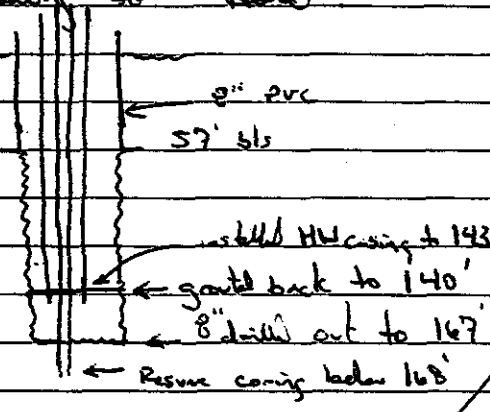 8" PVC
57' bls
installed HW casing to 143
grouted back to 140'
8" drilled out to 167'
Resume coring below 168'